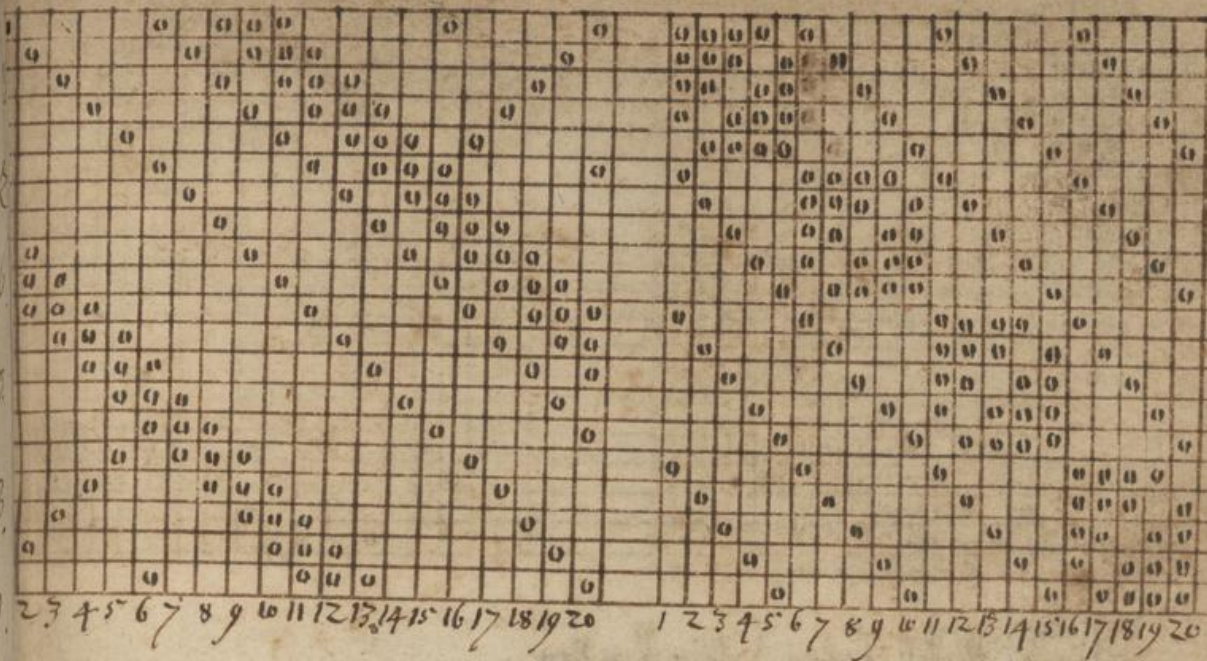 2 3 4 5 6 7 8 9 10 11 12 13 14 15 16 17 18 19 20 1 2 3 4 5 6 7 8 9 10 11 12 13 14 15 16 17 18 19 20